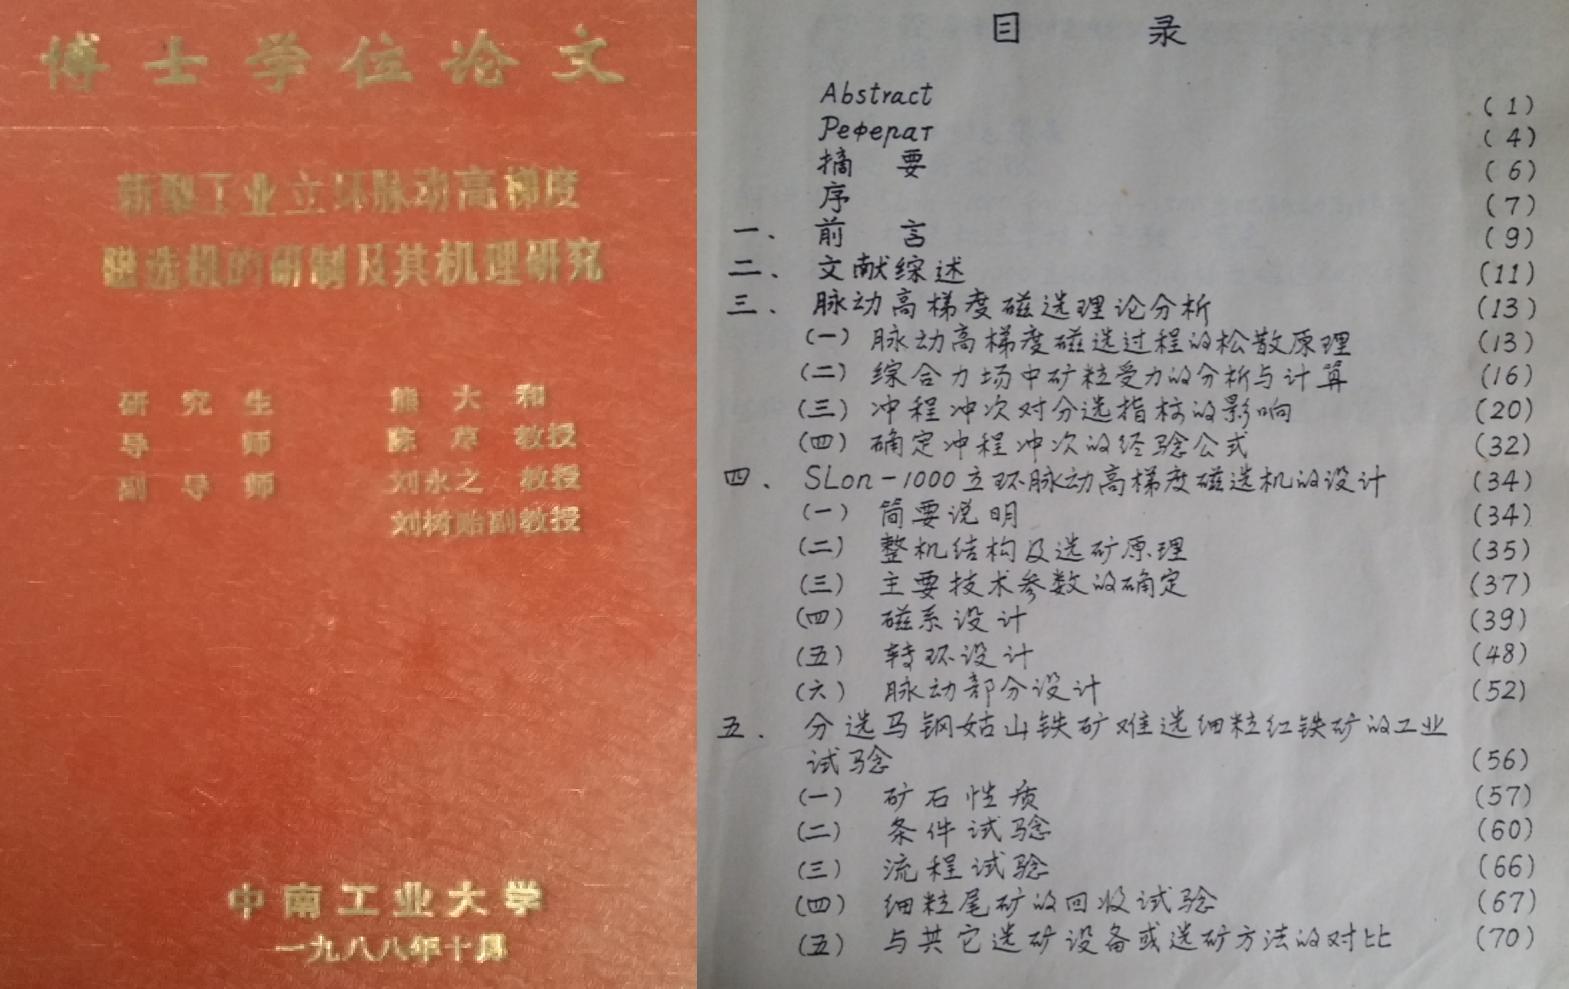 博士学位论文
新型工业立环脉动高梯度
磁选机的研制及其机理研究
研究生 熊大和
导师 陈荩 教授
副导师 刘永之 教授
刘树贻副教授
中南工业大学
一九八八年十月
目 录
Abstract (1)
Реферат (4)
摘 要 (6)
序 (7)
一. 前 言 (9)
二. 文献综述 (11)
三. 脉动高梯度磁选理论分析 (13)
(一) 脉动高梯度磁选过程的松散原理 (13)
(二) 综合力场中矿粒受力的分析与计算 (16)
(三) 冲程冲次对分选指标的影响 (20)
(四) 确定冲程冲次的经验公式 (32)
四. SLon-1000立环脉动高梯度磁选机的设计 (34)
(一) 简要说明 (34)
(二) 整机结构及选矿原理 (35)
(三) 主要技术参数的确定 (37)
(四) 磁系设计 (39)
(五) 转环设计 (48)
(六) 脉动部分设计 (52)
五. 分选马钢姑山铁矿难选细粒红铁矿的工业
试验 (56)
(一) 矿石性质 (57)
(二) 条件试验 (60)
(三) 流程试验 (66)
(四) 细粒尾矿的回收试验 (67)
(五) 与其它选矿设备或选矿方法的对比 (70)